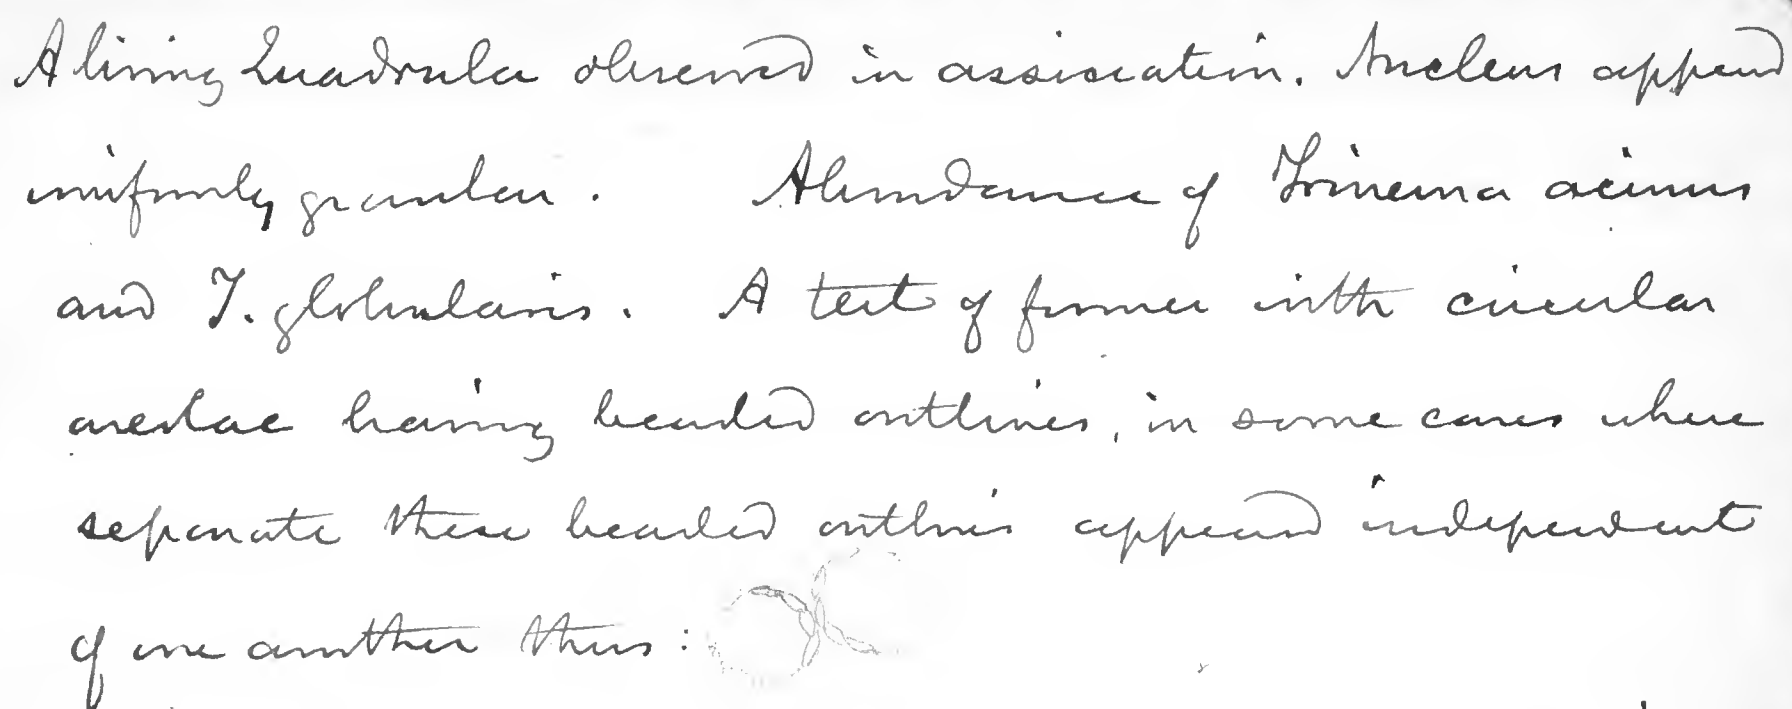 A living Quadrula observed in association. Nucleus appeared
uniformly granular. Abundance of Trinema acinus
and T. globularis. A test of former with circular
areolae having beaded outlines, in some cases where
separate these beaded outlines appeared independent
of one another thus: